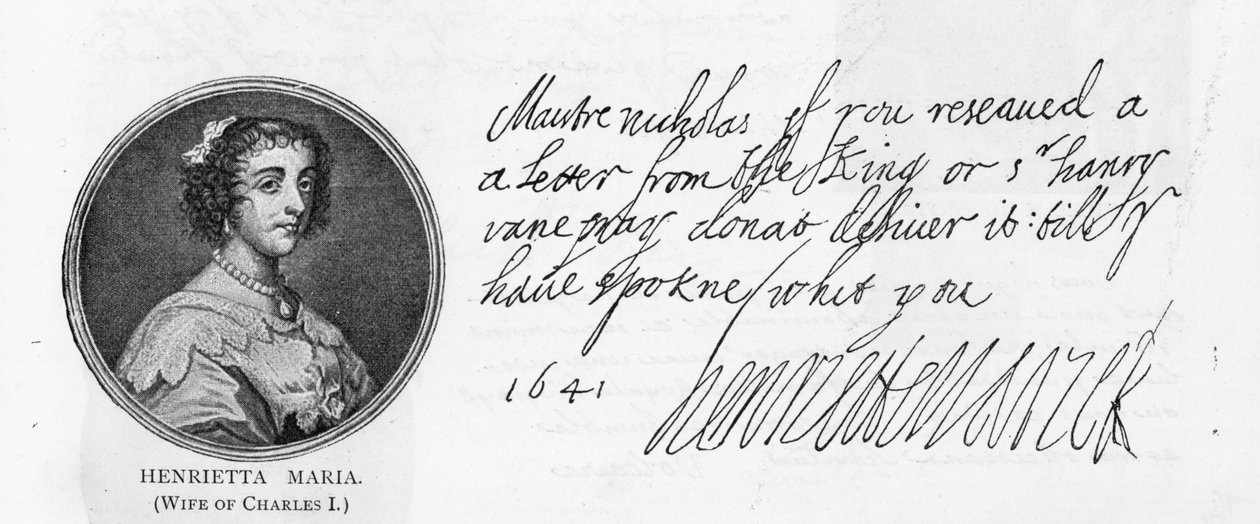 Maistre nicholas if you reseaued a
a letter from the King or sr hanry
vane pray donat deliuer it: till y
haue spokne whit you
1641
Henriette Marie R
HENRIETTA MARIA.
(WIFE OF CHARLES I.)